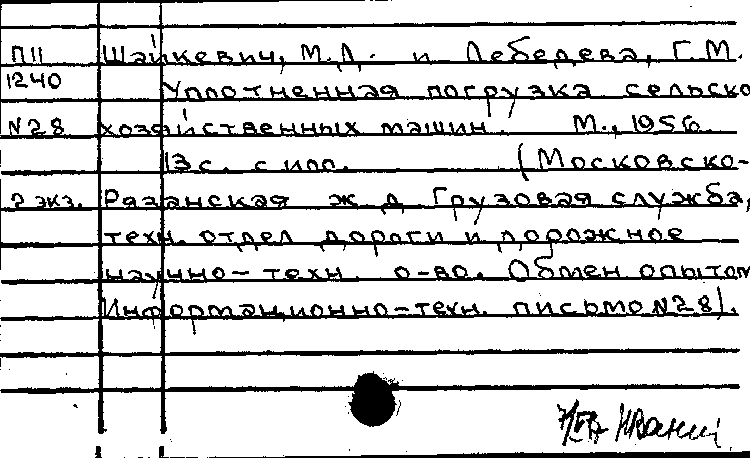 П11 Шайкевич, М.Л. и Лебедева, Г.М.
1240 Уплотненная погрузка сельско
N28 хозяйственных машин. М., 1956.
13с. с илл. (Московско-
2 экз. Рязанская ж д Грузовая служба,
техн. отдел дороги и дорожное
научно-техн. о-во. Обмен опытом
Информационно-техн. письмо N28).